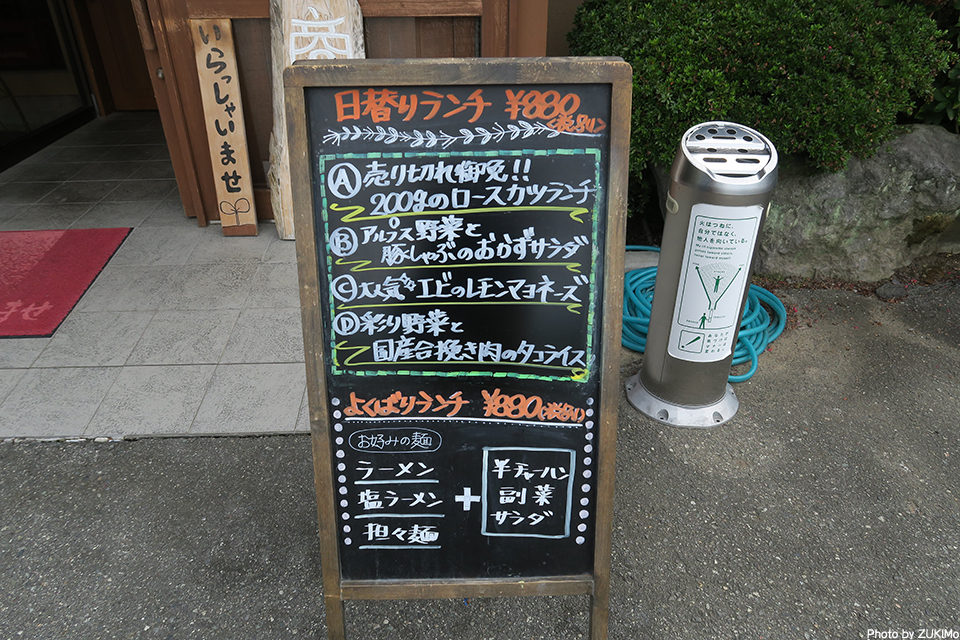 いらっしゃいませ
日替りランチ ¥880
<税別>
Ⓐ売り切れ御免!!
200gのロースカツランチ
Ⓑアルプス野菜と
豚しゃぶのおかずサラダ
Ⓒ大人気エビのレモンマヨネーズ
Ⓓ彩り野菜と
国産合挽き肉のタコライス
よくばりランチ ¥880<税別>
お好みの麺
ラーメン
塩ラーメン
担々麺
+
半チャーハン
副菜
サラダ
火はつねに、
自分ではなく、
他人を向いている。
あなたが
気づけば
マナーは
変わる。
Photo by ZUKIMo